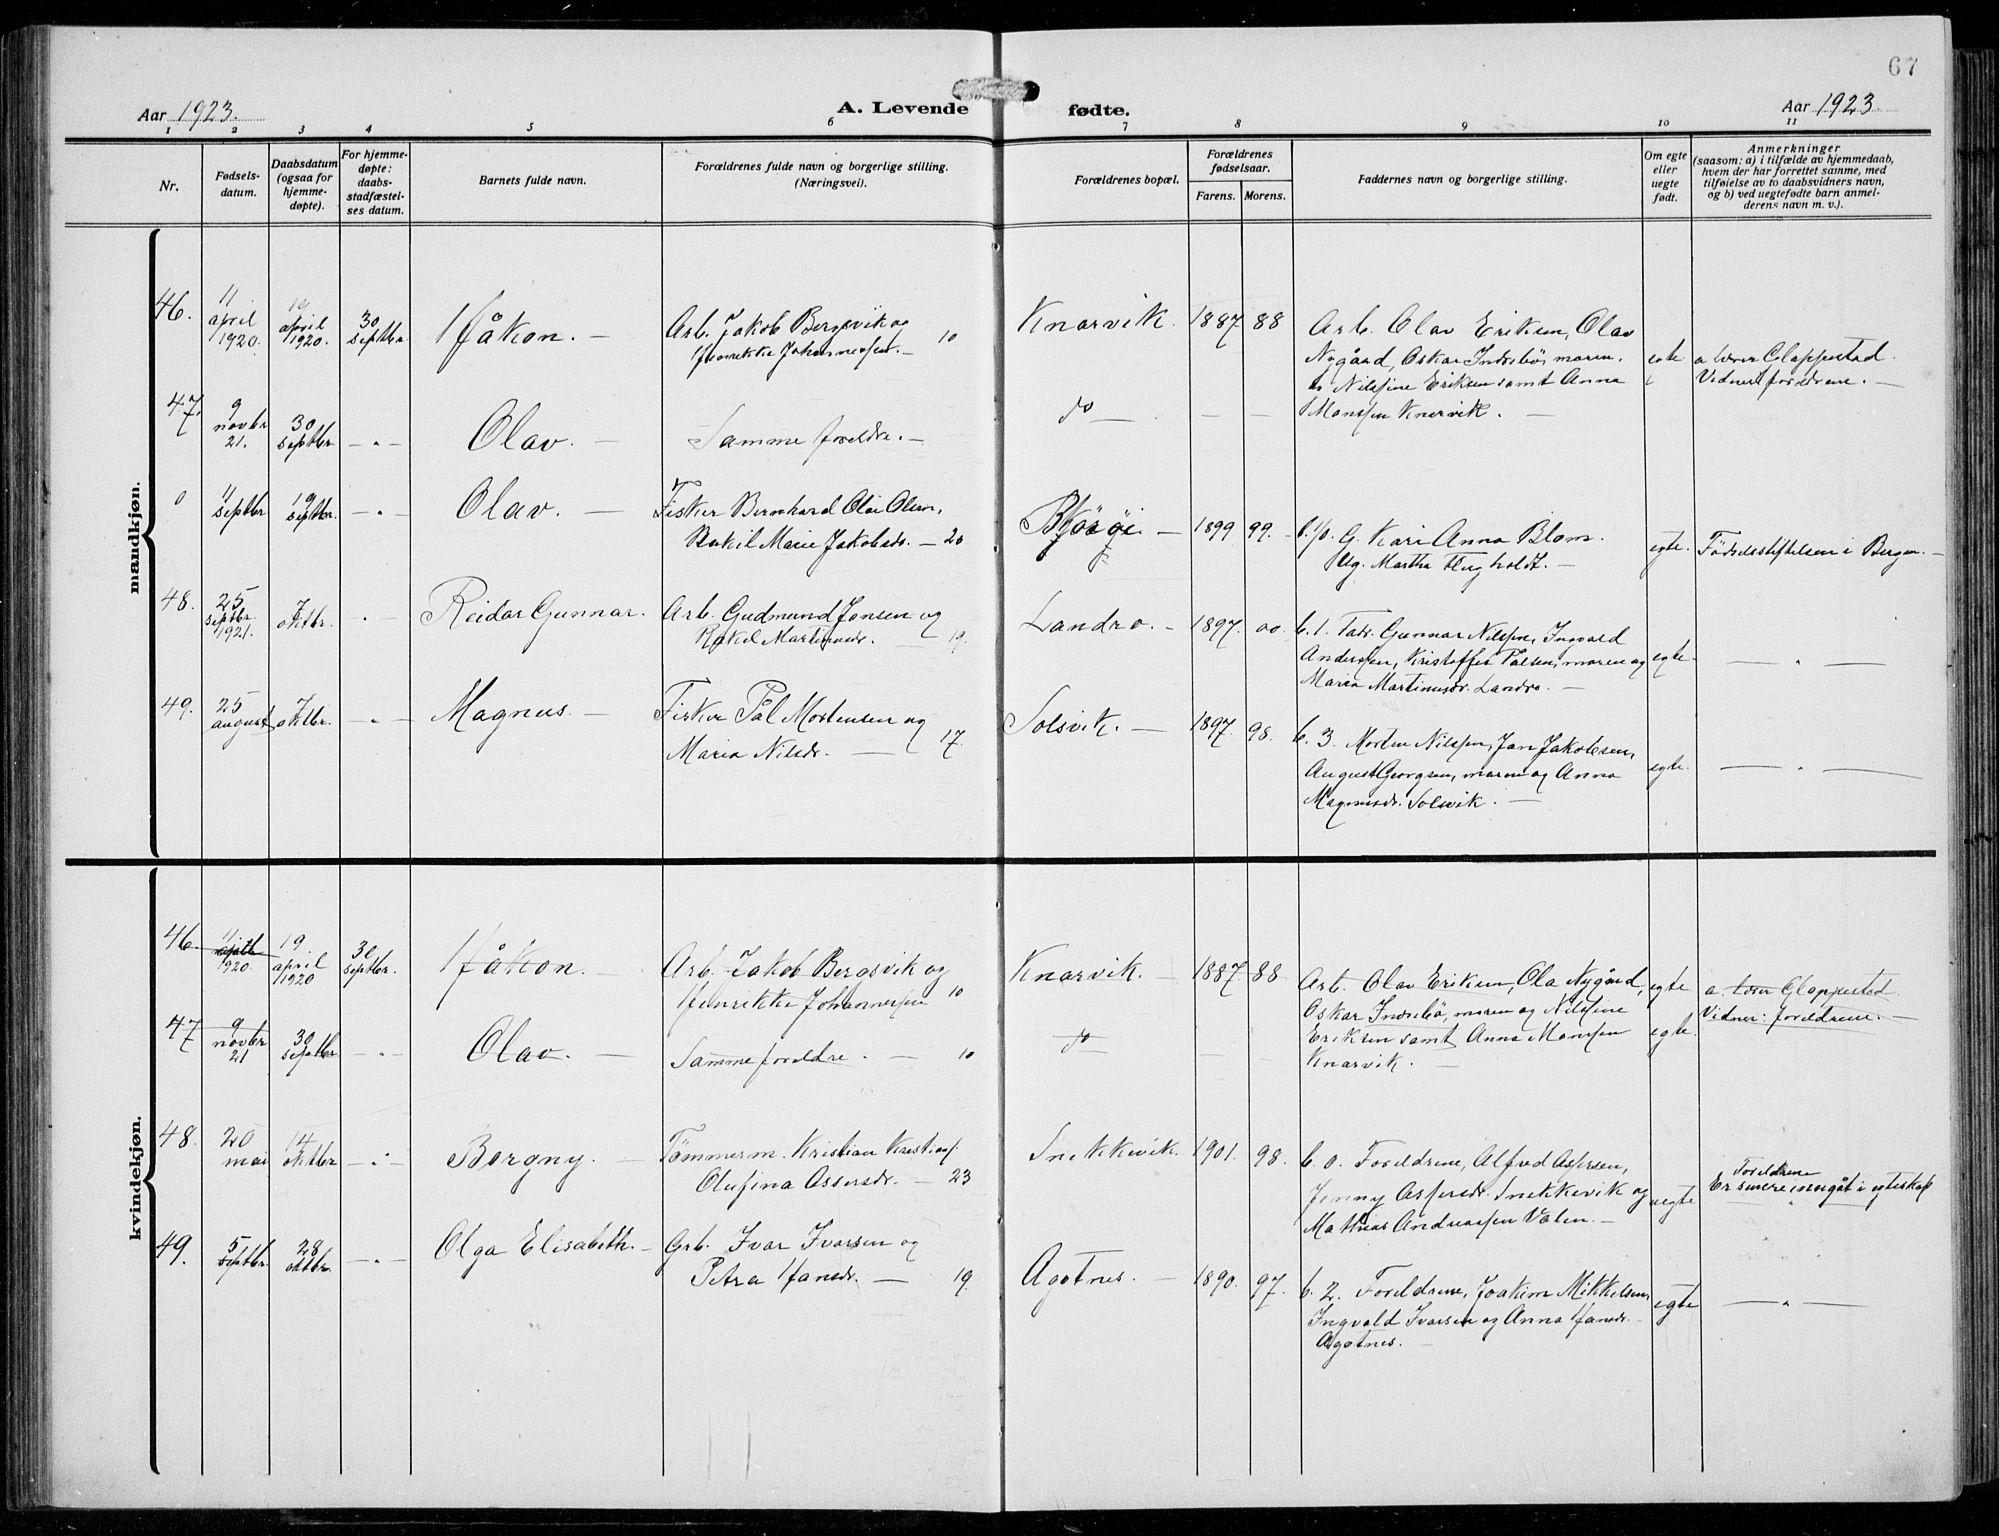 67
Aar 1923.
A. Levende fødte.
Aar 1923.
1 2 3 4 5 6 7 8 9 10 11
Nr.
Fødselsdatum.
Daabsdatum (ogsaa for hjemmedøpte).
For hjemmedøpte: daabsstadfæstelses datum.
Barnets fulde navn.
Forældrenes fulde navn og borgerlige stilling. (Næringsvei).
Forældrenes bopæl.
Forældrenes fødselsaar.
Farens. Morens.
Faddernes navn og borgerlige stilling.
Om egte eller uegte født.
Anmerkninger
(saasom: a) i tilfælde av hjemmedaab,
hvem der har forrettet samme, med
tilføielse av to daabsvidners navn,
og b) ved uegtefødte barn anmelderens navn m. v.).
mandkjøn.
46. 11 april 1920. 19 april 1920. 30 septbr. Håkon. — Arb. Jakob Bergsvik og
Henrikke Johannessen. — 10 Knarvik. 1887 88
Arb. Olav Eriksen, Olav
Nygård, Oskar Indrebö,
Nilsine Eriksen samt Anna
Monssen Knarvik. —
egte a lærer Glappestad.
Vidner: foreldrene. —
47. 9 novbr 21. 30 septbr — " — Olav. — Samme foreldre. — do — — —
0 11 septbr 19 septbr. — " — Olav. — Fisker Bernhard Olai Olsen,
Rakil Marie Jakobsdr. — 20 Bjorøi — 1899 99. — b. 1/0. G. Kari Anna Blom.
Martha Flugholdt. — egte. Födselsstiftelsen i Bergen. —
48. 25 septbr 1921. 7 oktbr. " Reidar Gunnar. Arb. Gudmund Jonsen og
Rakel Martinusdr. — 19. Landro. — 1897. 00. b. 1. Fadr. Gunnar Nilssen, Ingvald
Anderssen, Kristoffer Pålsen, maren og
Maria Martinusdr. Landro. — egte. — " —
49. 25 august 7 oktbr. — " — Magnus. — Fisker Pål Mortensen og
Maria Nilsdr. — 17. Solsvik. — 1897. 98. b. 3. Morten Nilssen, Jan Jakobsen,
August Georgsen, maren og Anna
Magnusdr. Solsvik. — egte. — " —
kvindekjøn.
46. 11 april 1920. 19. april 1920 30 septbr. Håkon. — Arb. Jakob Bergsvik og
Henrikke Johannessen 10 Knarvik. — 1887. 88
Arb. Olav Eriksen, Ola Nygård,
Oskar Indrebö, maren og Nilsine
Eriksen samt Anna Monssen
Knarvik. — egte a. lærer Glappestad.
Vidner: foreldrene. —
47 9 novbr 21 30 septbr. — " — Olav. — Samme foreldre. — 10 do — — egte.
48. 20 mai 14 oktbr — " — Borgny. — Tömmerm. Kristian Kristians
Olufina Assersdr. — 23 Snekkevik. 1901. 98. b. 0. Foreldrene, Alfred Assersen,
Jenny Assersdr. Snekkevik og
Mathias Andreassen Valen. — uegte Foreldrene
Er senere inngåt i egteskap
49. 5 septbr. 28 oktbr. — " — Olga Elisabeth. — Grb. Ivar Ivarsen og
Petra Hansdr. — 19. Agotnes. — 1890. 97. b. 2. Foreldrene, Joakim Mikkelsen,
Ingvald Ivarsen og Anna Hansdr.
Agotnes. — egte — " —